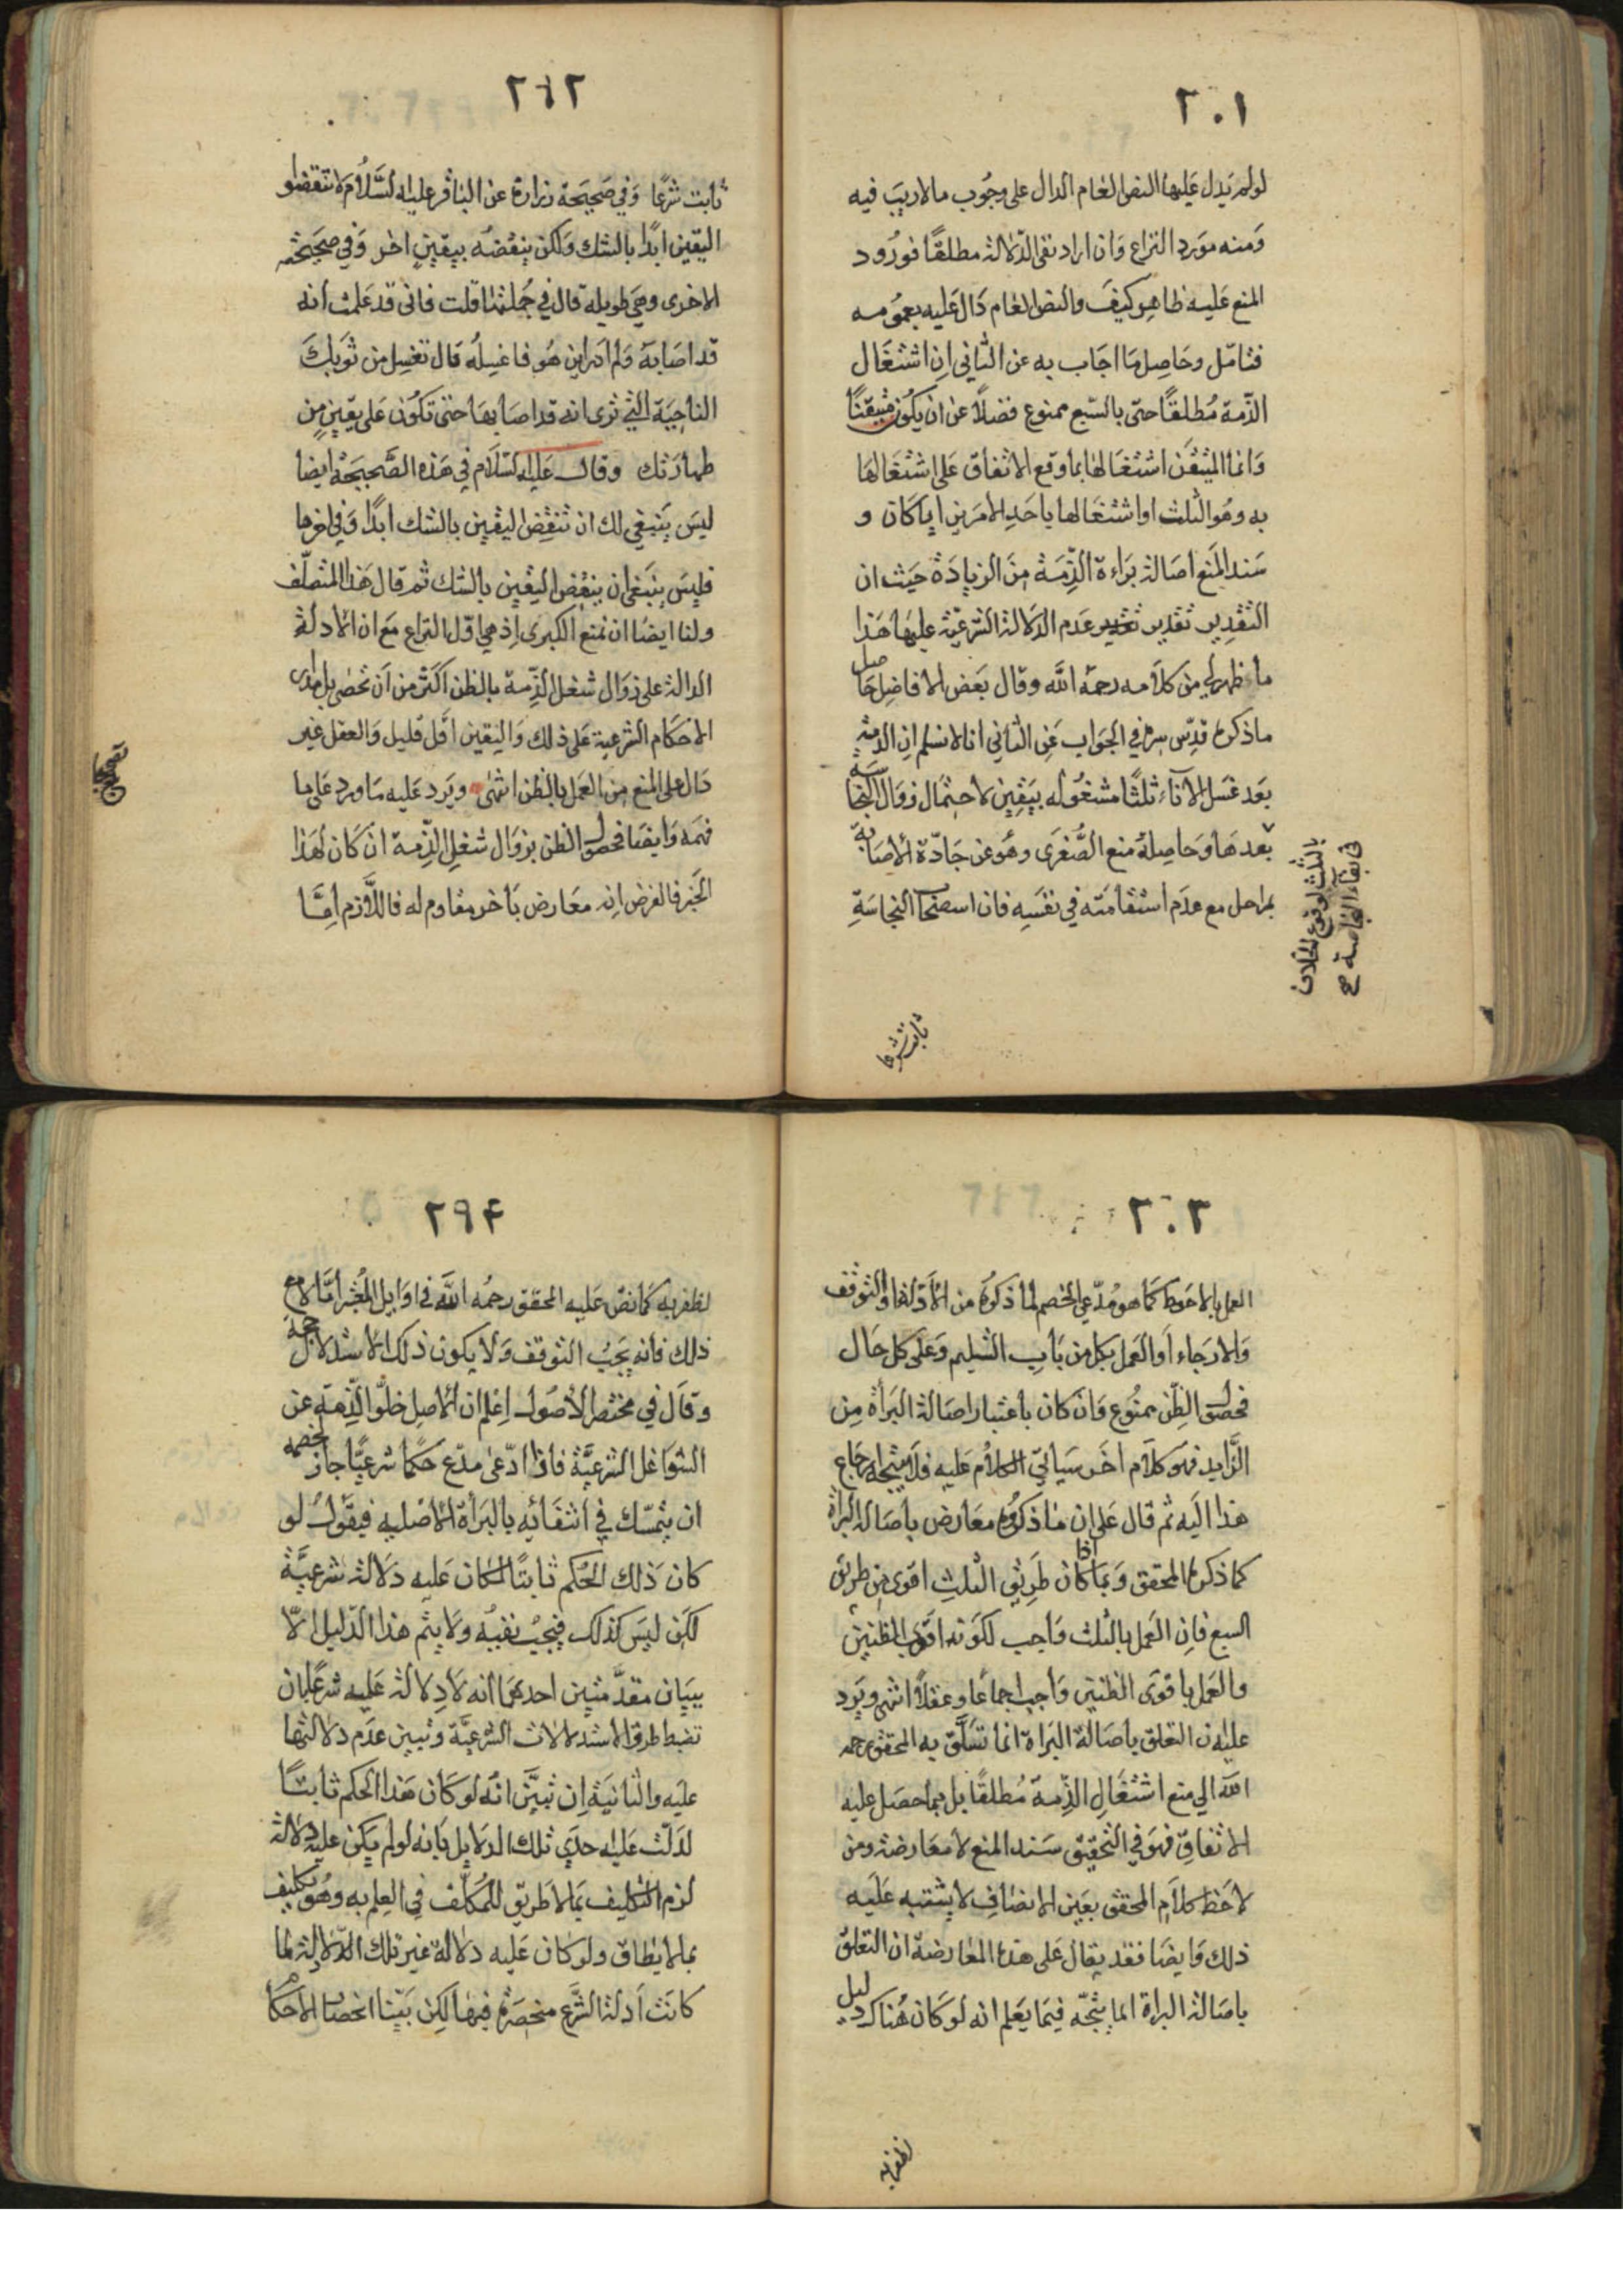 ٢٠١
لولم يدل عليها النص العام الدال على وجوب مالاريب فيه
ومنه مورد النزاع وان اراد نفى الدلالة مطلقا فورود
المنع عليه ظاهر كيف والنص العام دال عليه بعمومه
فتامل وحاصل ما اجاب به عن الثاني ان اشتغال
الذمة مطلقا حتى بالسبع ممنوع فضلا عن ان يكون متيقنا
وانما المتيقن اشتغالها بما وقع الاتفاق على اشتغالها
به وهو الثلث او اشتغالها باحد الامرين ايا كان و
سند المنع اصالة براءة الذمة من الزيادة حيث ان
التقدير تقدير عدم الدلالة الشرعية عليها هذا
ما ظهر لي من كلامه رحمه الله وقال بعض الافاضل حاصل
ما ذكره قدس سره في الجواب عن الثاني انا لا نسلم ان الذمة
بعد غسل الاناء ثلثا مشغوله بيقين لاحتمال زوال النجاسة
بعدها وحاصله منع الصغرى وهو عن جادة الاصابة
بمراحل مع عدم استقامته في نفسه فان استصحاب النجاسة
بالثلث لوقوع الخلاف
في بقاء النجاسة صح
ثابت شرعا
٢٤٢
ثابت شرعا وفي صحيحة زرارة عن الباقر عليه السلام لا تنقضوا
اليقين ابدا بالشك ولكن ينقضه بيقين اخر وفي صحيحته
الاخرى وهي طويلة قال في جملتها قلت فاني قد علمت انه
قد اصابه ولم ادر اين هو فاغسله قال تغسل من ثوبك
الناحية التي ترى انه قد اصابها حتى تكون على يقين من
طهارتك وقال عليه السلام في هذه الصحيحة ايضا
ليس ينبغي لك ان تنقض اليقين بالشك ابدا وفي اخرها
فليس ينبغي ان ينقض اليقين بالشك ثم قال هذا المتصلف
ولنا ايضا ان نمنع الكبرى اذ هي اول النزاع مع ان الادلة
الدالة على زوال شغل الذمة بالظن اكثر من ان تحصى بل مدار
الاحكام الشرعية على ذلك واليقين اقل قليل والعقل غير
دال على المنع من العمل بالظن انتهى ويرد عليه ما ورد على ما
فهمه وايضا فحصول الظن بزوال شغل الذمة ان كان لهذا
الخبر فالفرض انه معارض باخر مقاوم له فاللازم اما
٢٠٣
العمل بالاحوط كما هو مدعي الخصم لما ذكره من الادلة او التوقف
والارجاء او العمل بكل من باب التسليم وعلى كل حال
فحصول الظن ممنوع وان كان باعتبار اصالة البرأة من
الزايد فهو كلام اخر سيأتي الكلام عليه فلا يتجه ارجاع
هذا اليه ثم قال على ان ما ذكروه معارض باصالة البراة
كما ذكره المحقق وبما اذا كان طريق الثلث اقوى من طريق
السبع فان العمل بالثلث واجب لكونه اقوى الظنين
والعمل باقوى الظنين واجب اجماعا وعقلا انتهى ويرد
عليه ان التعلق باصالة البراة انما تسلق به المحقق رحمه
الله الي منع اشتغال الذمة مطلقا بل بما حصل عليه
الاتفاق فهو في التحقيق سند المنع لا معارضة ومن
لاحظ كلام المحقق بعين الانصاف لا يشتبه عليه
ذلك وايضا فقد يقال على هذه المعارضة ان التعلق
باصالة البراة انما يتجه فيما يعلم انه لو كان هناك دليل
لظفر به
٢٩۴
لظفر به كما نص عليه المحقق رحمه الله في اوايل المعتبر اما لا مع
ذلك فانه يجب التوقف ولا يكون ذلك الاستدلال حجة
وقال في مختصر الاصول اعلم ان الاصل خلو الذمة عن
الشواغل الشرعية فاذا ادعى مدع حكما شرعيا جاز لخصمه
ان يتمسك في انتفائه بالبرأة الاصلية فيقول لو
كان ذلك الحكم ثابتا لكان عليه دلالة شرعية
لكن ليس كذلك فيجب نفيه ولا يتم هذا الدليل الا
ببيان مقدمتين احدهما انه لا دلالة عليه شرعا بان
تضبط طرق الاستدلالات الشرعية وتبين عدم دلالتها
عليه والثانية ان تبين انه لو كان هذا الحكم ثابتا
لدلت عليه احدي تلك الدلايل بانه لو لم يكن عليه دلالة
لزم التكليف بما لا طريق للمكلف في العلم به وهو تكليف
بما لا يطاق ولو كان عليه دلالة غير تلك الدلالة لما
كانت ادلة الشرع منحصرة فيها لكن بينا انحصار الاحكام